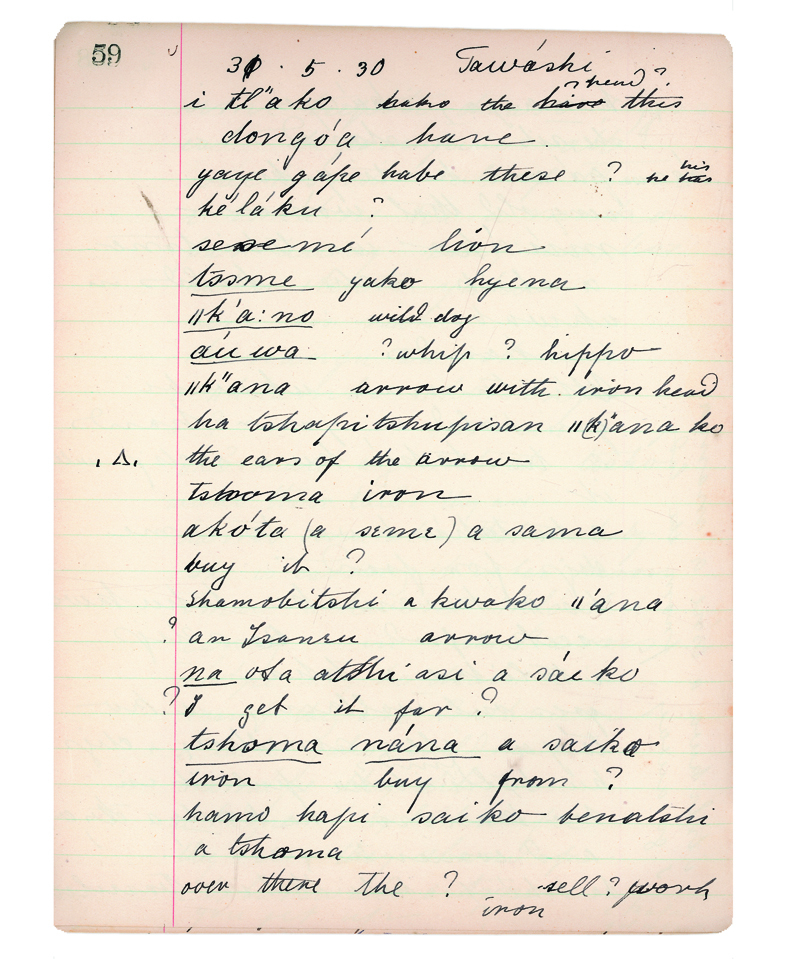 59
31 . 5 . 30 Tawáshi
i tl"ako hako the have ? head ? this
dongóa have.
yaye gápe habe these ? he his has
héláku ?
sesemé lion
tssme yako hyena
ǁk'a:no wild dog
áuwa ? whip ? hippo
ǁk"ana arrow with iron head
ha tshapitshupisan ǁ(k)"ana ko
the ears of the arrow
tshooma iron
akóta (a seme) a sama
buy it ?
shamobitshi a kwako ǁ'ana
? an Isanzu arrow
na ota atshiasi a sáeko
? I get it for ?
tshoma nána a saiko
iron buy from ?
hamo hapi saiko benatshi
a tshoma
over there the ? sell ? work
iron